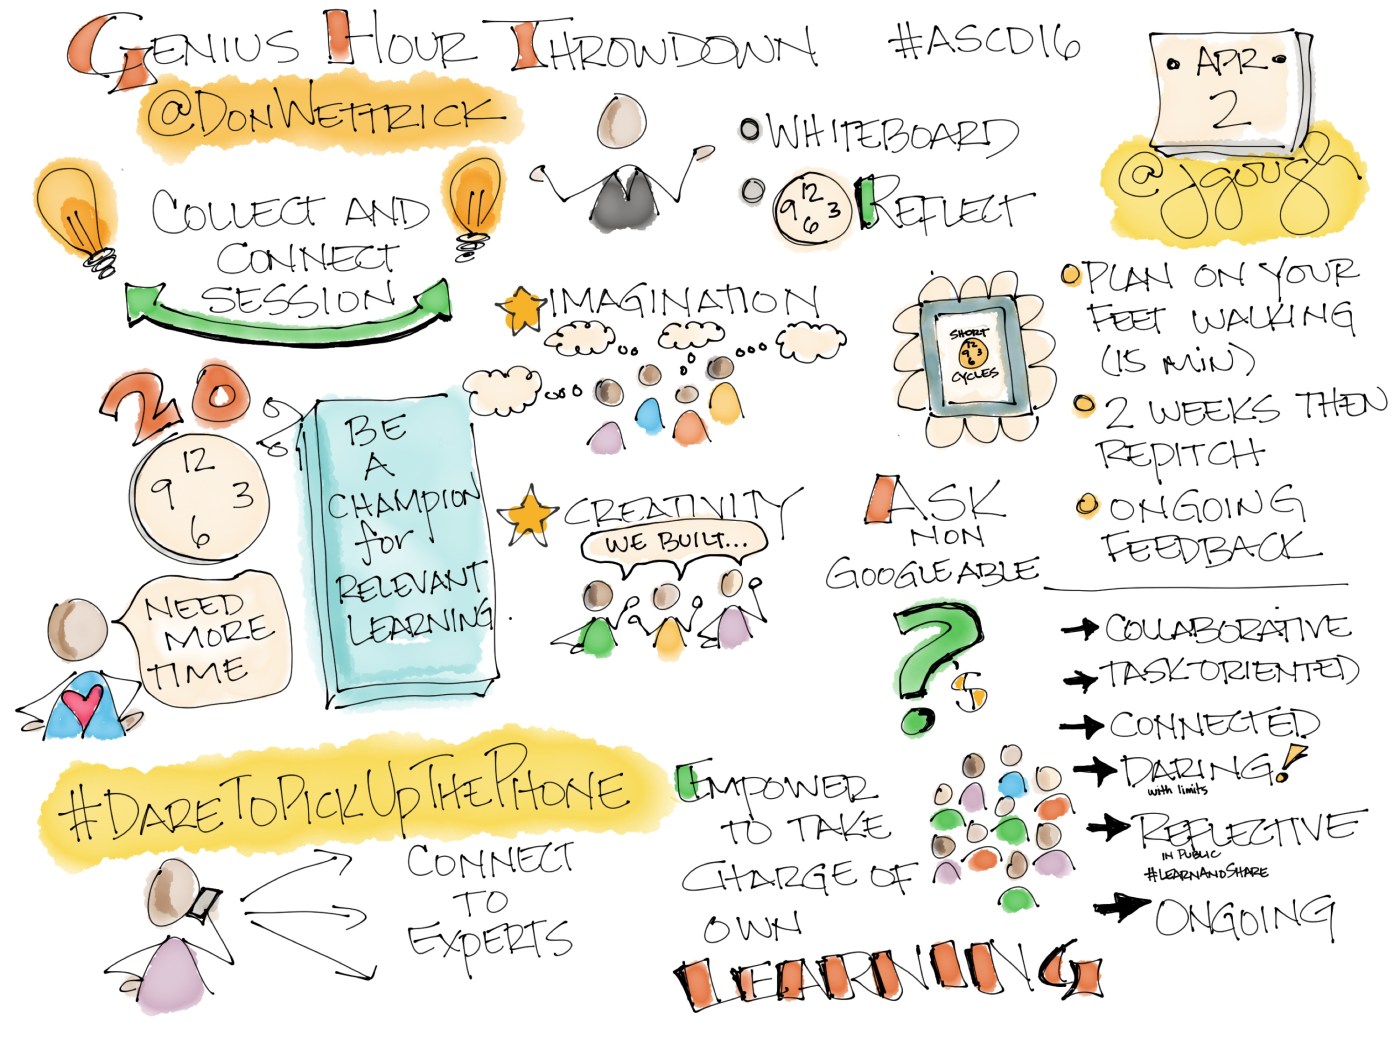 GENIUS HOUR THROWDOWN
#ASCD16
APR
2
@DONWETTRICK
@jgough
COLLECT AND
CONNECT
SESSION
WHITEBOARD
12
9 3
6
REFLECT
IMAGINATION
SHORT
12
9 3
6
CYCLES
PLAN ON YOUR
FEET WALKING
(15 MIN)
2 WEEKS THEN
REPITCH
ONGOING
FEEDBACK
20
12
9 3
6
NEED
MORE
TIME
BE
A
CHAMPION
for
RELEVANT
LEARNING
CREATIVITY
WE BUILT...
ASK
NON
GOOGLEABLE
?s
COLLABORATIVE
TASK-ORIENTED
CONNECTED
DARING!
with limits
REFLECTIVE
IN PUBLIC
#LEARNANDSHARE
ONGOING
#DARETOPICKUPTHEPHONE
CONNECT
TO
EXPERTS
EMPOWER
TO TAKE
CHARGE OF
OWN
LEARNING